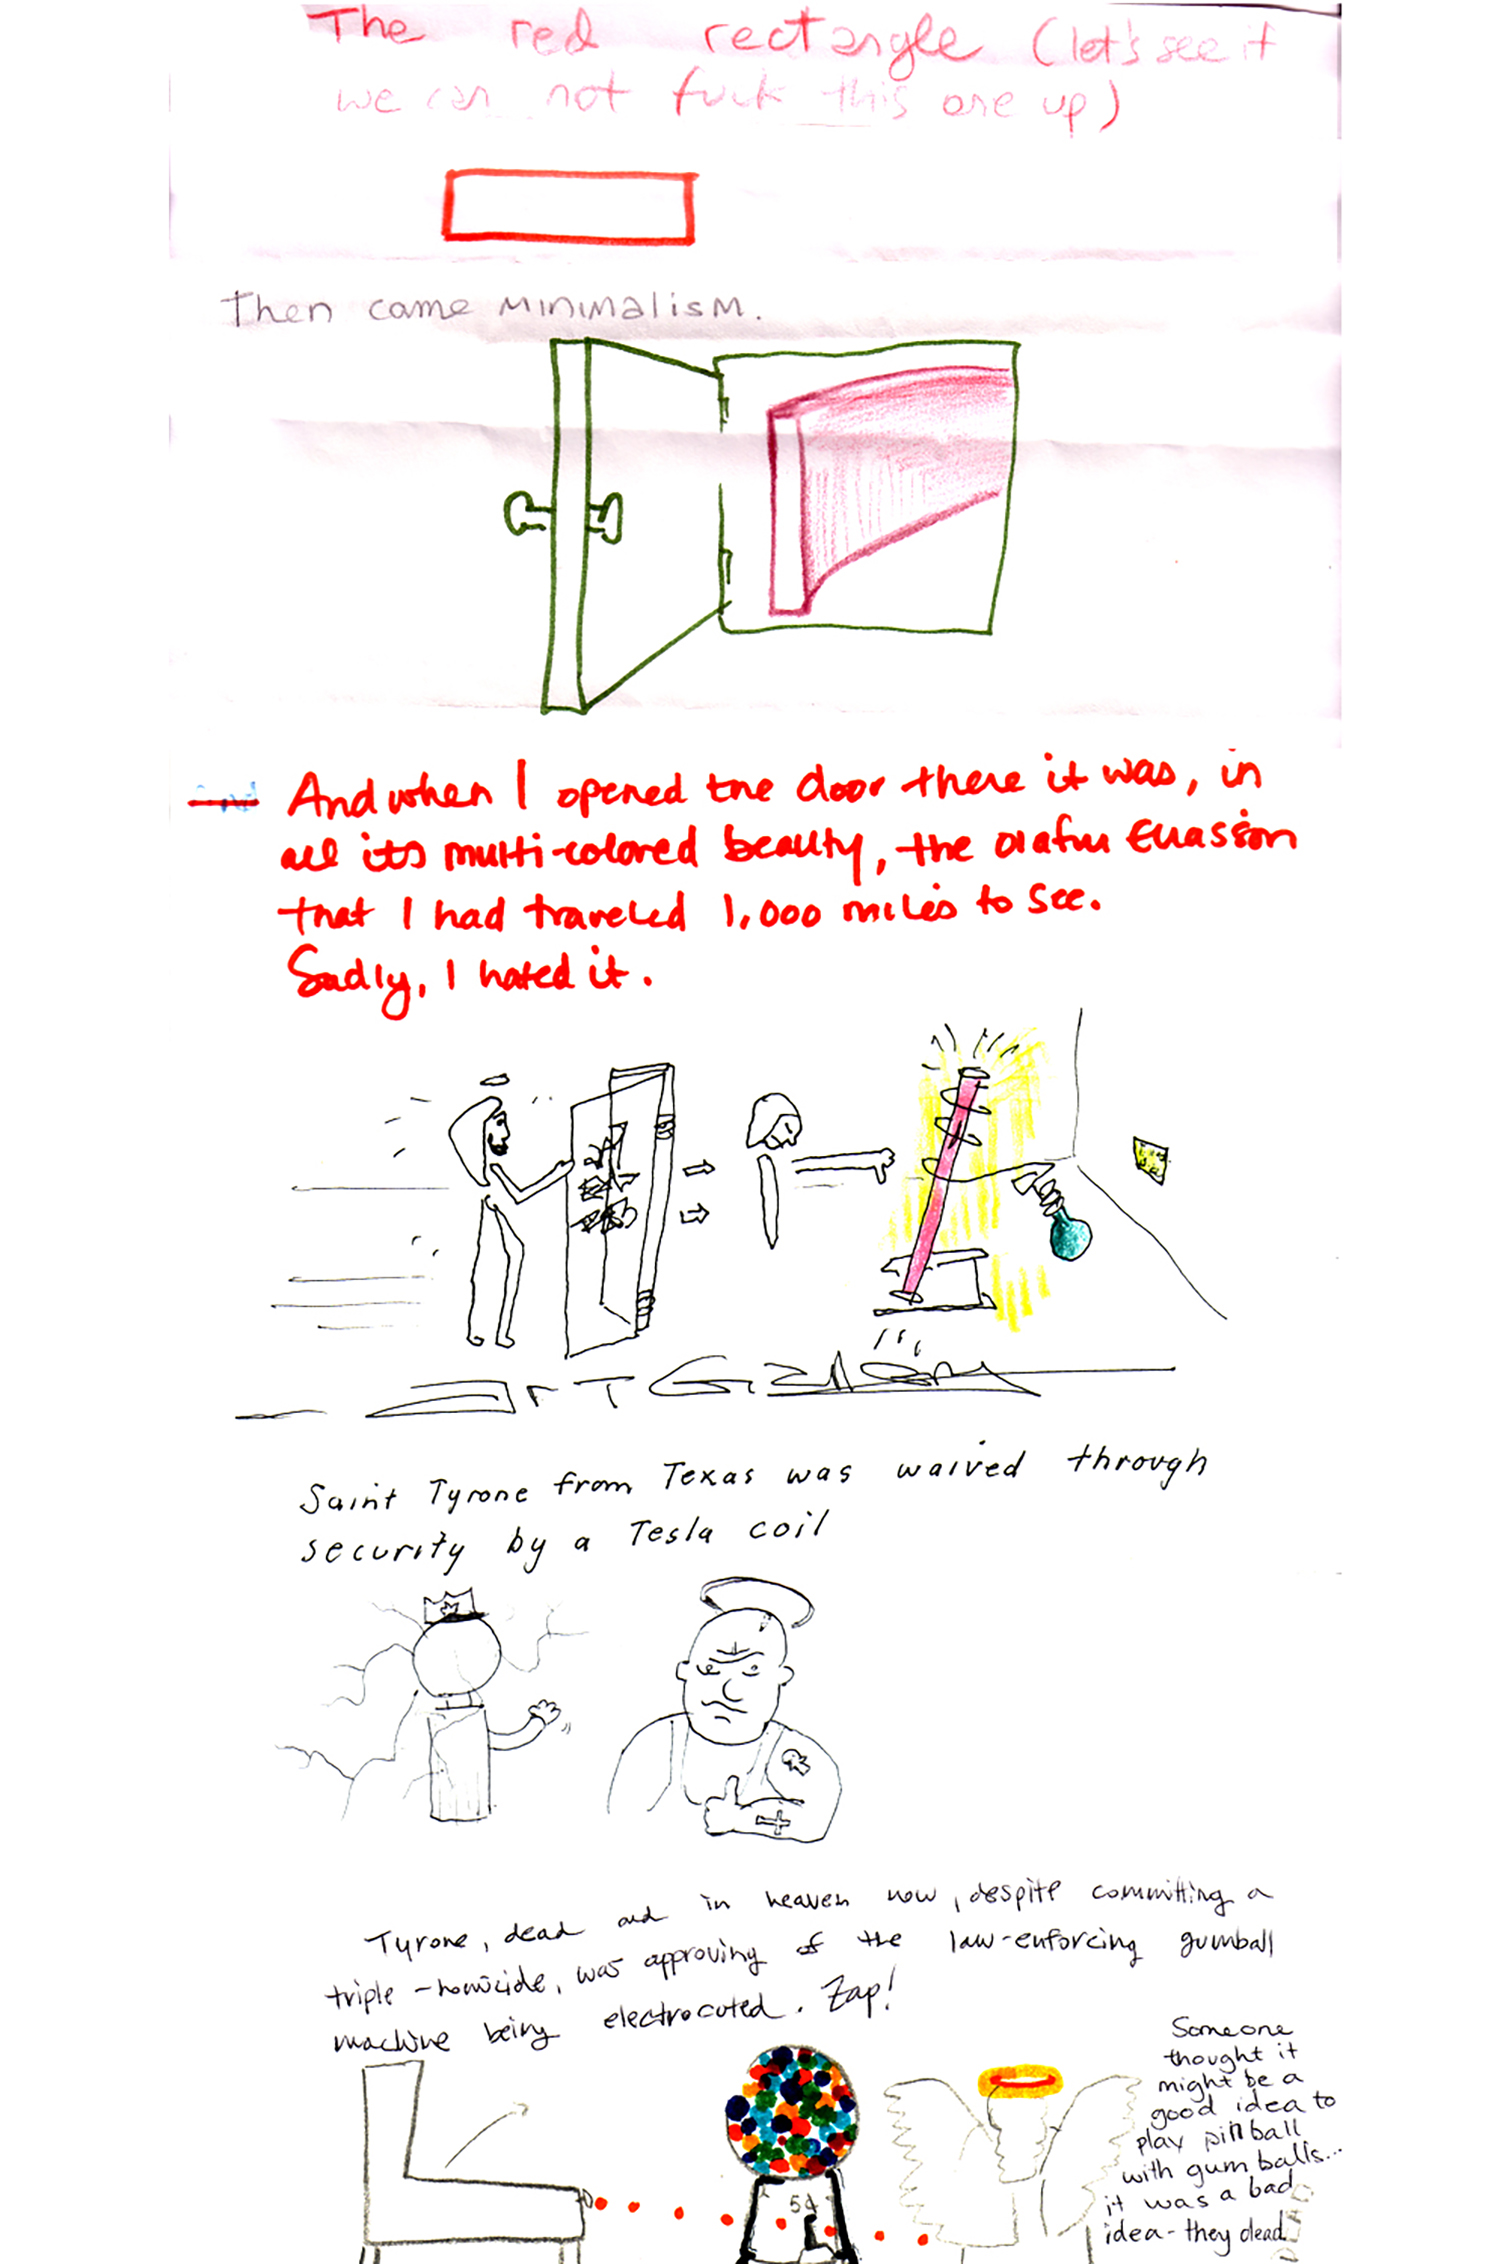 The red rectangle (let's see if
we can not fuck this one up)
Then came minimalism.
And when I opened the door there it was, in
all its multi-colored beauty, the Olafur Eliasson
that I had traveled 1,000 miles to see.
Sadly, I hated it.
ART GALLERY
Saint Tyrone from Texas was waived through
security by a Tesla coil
Tyrone, dead and in heaven now, despite committing a
triple-homicide, was approving of the law-enforcing gumball
machine being electrocuted. Zap!
Someone
thought it
might be a
good idea to
play pinball
with gumballs...
it was a bad
idea - they dead
5¢
DEAD